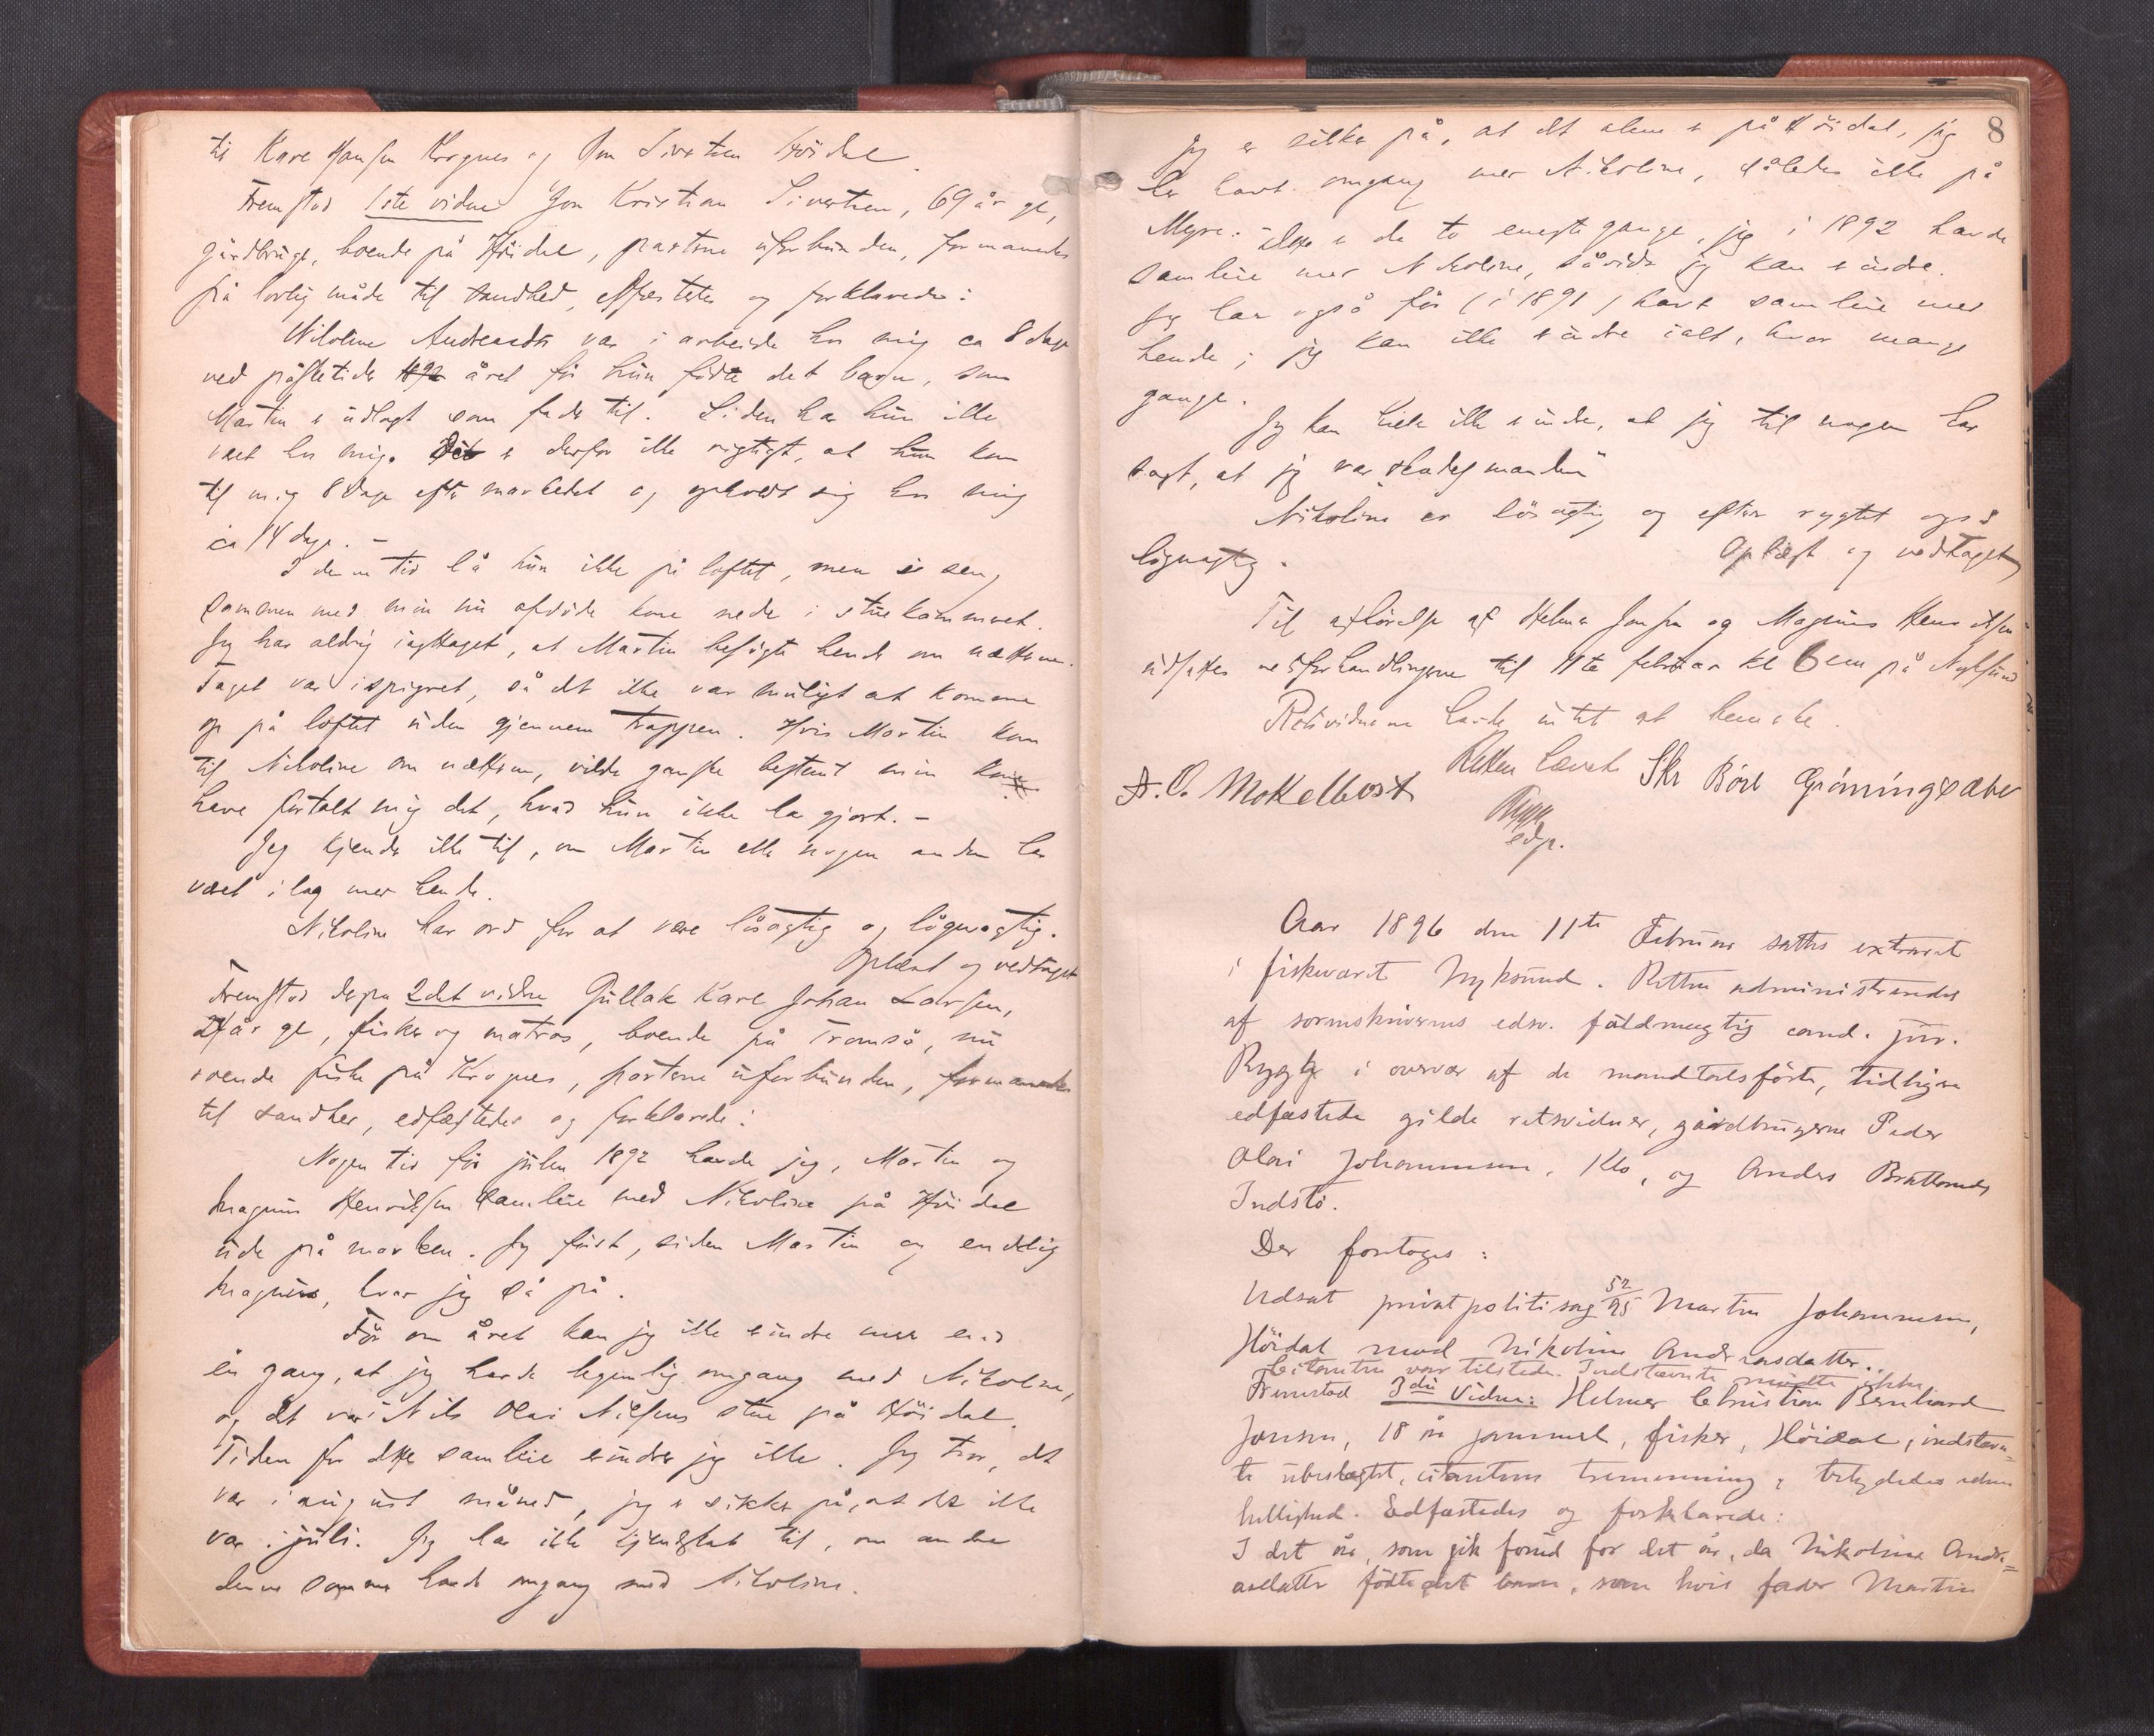 til Kare Hansen Krognes og Jon Sivertsen Höidal
Fremstod 1ste vidne Jon Kristian Sivertsen, 69 år gl,
gårdbruger, boende på Höidal, parterne uforbunden, formanedes
på lovlig måde til sandhed, edfæstedes og forklarede:
Nikoline Andreasdtr var i arbeide hos mig ca 8 dage
ved påsketider 1892 året før hun födte det barn, som
Martin er udlagt som fader til. Siden har hun ikke
været hos mig. Det er derfor ikke rigtigt, at hun kom
til mig 8 dage efter markedet og opholdt sig hos mig
ca 14 dage. –
I denne tid lå hun ikke på loftet, men i seng
sammen med min nu afdöde kone nede i stuekammeret.
Jeg har aldrig iagttaget, at Martin besögte hende om nætterne.
Taget var ispigret, så det ikke var muligt at komme
op på loftet uden gjennem trappen. Hvis Martin kom
til Nikoline om nætterne, vilde ganske bestemt min kone
have fortalt mig det, hvad hun ikke har gjort. –
Jeg kjender ikke til, om Martin eller nogen anden har
været i lag med hende.
Nikoline har ord for at være lösagtig og lögnagtig.
Oplæst og vedtaget
Fremstod derpå 2det vidne Gullak Kare Johan Larsen,
år gl, fisker og matros, boende på Tromsö, nu
roende fiske på Krognes, parterne uforbunden, formanedes
til sandhed, edfæstedes og forklarede:
Nogen tid för julen 1892 havde jeg, Martin og
Magnus Henriksen samleie med Nikoline på Höidal
ude på marken. Jeg först, siden Martin og endelig
Magnus, hvor jeg så på.
Før om året kan jeg ikke erindre mere end
én gang, at jeg havde legemlig omgang med Nikoline,
og det var i Nils Olai Nilsens stue på Höidal.
Tiden for dette samleie erindrer jeg ikke. Jeg tror, det
var i august måned, jeg er sikker på, at det ikke
var i juli. Jeg har ikke kjendskab til, om andre
denne sommer havde omgang med Nikoline.
8
Jeg er sikker på, at det alene er på Höidal, jeg
har havt omgang med Nikoline, således ikke på
Myre. Disse er de to eneste gange, jeg i 1892 havde
samleie med Nikoline, såvidt jeg kan erindre.
Jeg har også för (i 1891) havt samleie med
hende; jeg kan ikke erindre ialt, hvor mange
gange.
Jeg kan heller ikke erindre, at jeg til nogen har
sagt, at jeg var "skadesmanden"
Nikoline er lösagtig og efter rygtet også
lögnagtig.
Oplæst og vedtaget
Til afhörelse af Helmer Jonsen og Magnus Henriksen
udsattes retsforhandlingerne til 11te februar kl 6 em på Nyksund
Retsvidnerne havde intet at bemærke.
Retten hævet
A. O. Mokelbost Skr Börl Gröningsæter
Rygge
edsv.
Aar 1896 den 11te Februar sattes extraret
i fiskeværet Nyksund. Retten administreredes
af sorenskriverens edsv. fuldmægtig cand. jur.
Rygge i overvær af de mandtalsförte, tidligere
edfæstede gilde retsvidner, gårdbrugerne Peder
Olai Johannesen, Klo, og Anders Brattlands
Indstö.
Der foretoges:
Udsat privat politisag 52/95 Martin Johannesen,
Höidal mod Nikoline Andreasdatter.
Citanten var tilstede. Indstævnte mödte ikke.
Fremstod 3die Vidne: Helmer Christian Bernhard
Jonsen, 18 år gammel, fisker, Höidal, indstævn-
te ubeslægtet, citantens tremenning, betydedes edens
hellighed. Edfæstedes og forklarede:
I det år, som gik forud for det år, da Nikoline Andre=
asdatter fødte det barn, som hvis fader Martin